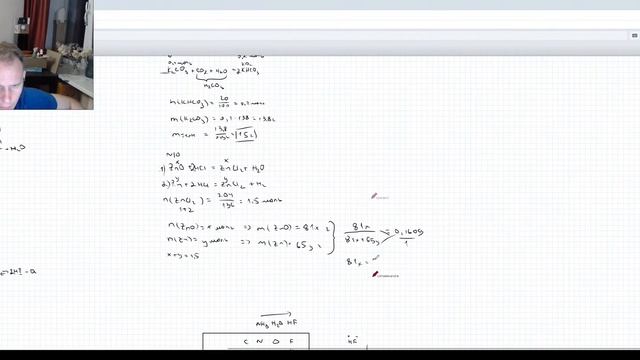 K₂CO₃ + CO₂ + H₂O = 2KHCO₃
H₂CO₃
n(KHCO₃) = 20/100 = 0,2 моль
m(K₂CO₃) = 0,1·138 = 13,8г
= 15г
N10
1) ZnO + 2HCl = ZnCl₂ + H₂O
2) Zn + 2HCl = ZnCl₂ + H₂
n(ZnCl₂) = 204/136 = 1.5 моль
1+2
n(ZnO) = x моль => m(ZnO) = 81x г
n(Zn) = y моль => m(Zn) = 65y г
x+y=1,5
81x/81x+65y = 0,1605/1
81x =
NH₃ H₂O HF
C N O F
HF